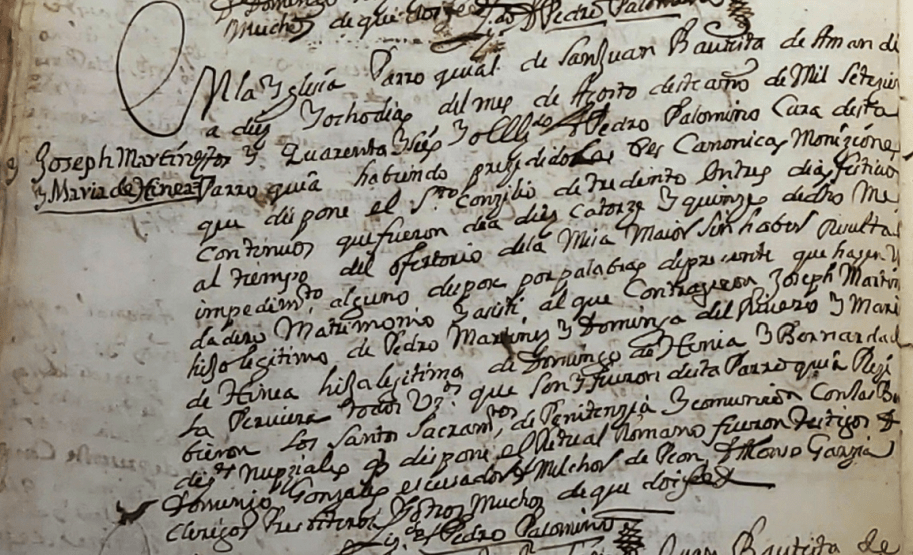 Muchos de que doi fee Lizdo Pedro Palomino
En la Yglesia Parroquial de San Juan Bautista de Aman di
a diez y ocho dias del mes de Agosto deste año de Mil Setezien
tos y Quarenta y seis yo el Lizdo Pedro Palomino Cura desta
Parroquia habiendo prezedido las tres Canonicas Moniziones
Joseph Martinez
y Maria de Hinea
que dispone el Sto Conzilio de tredento En tres dias festivos
Continuos que fueron dia diez Catorze y quinze de dho Me
al tiempo del ofertorio de la Misa Maior sin haber resulta
impedimto alguno despose por palabras de presente que hazen V
dadero Matrimonio y asisti al que Contrageron Joseph Martin
hijo legitimo de Pedro Martinez y Dominga del Rivero y Mari
de Hinea hija legitima de Domingo de Henia y Bernarda d
la Peruiera todos Vzos que son y fueron desta Parroquia Rezi
bieron los Santos Sacramtos de Penitenzia y comunion Con las Be
diznes Nupziales qe dispone el Ritual Romano fueron testigos D
Domingo Gonzalez escusador D Milchor de Peon D Alonso Garzia
Clerigos Presviteros y otros Muchos de que doi fee
Lizdo Pedro Palomino
Juan Bautista de